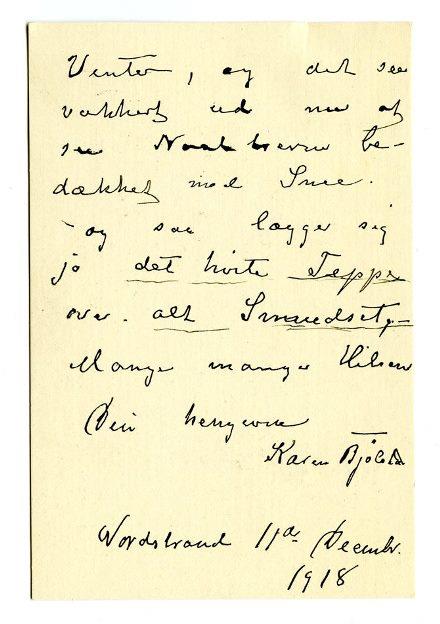 Venter, og det see
vakkert ud nu at
see Naaletrerne be-
dækket med Snee.
- og saa lægger sig
jo det hvite Teppe
over alt Smudset,-
Mange mange Hilsen
Din hengivne
Karen
Nordstrand 11te Decembr.
1918